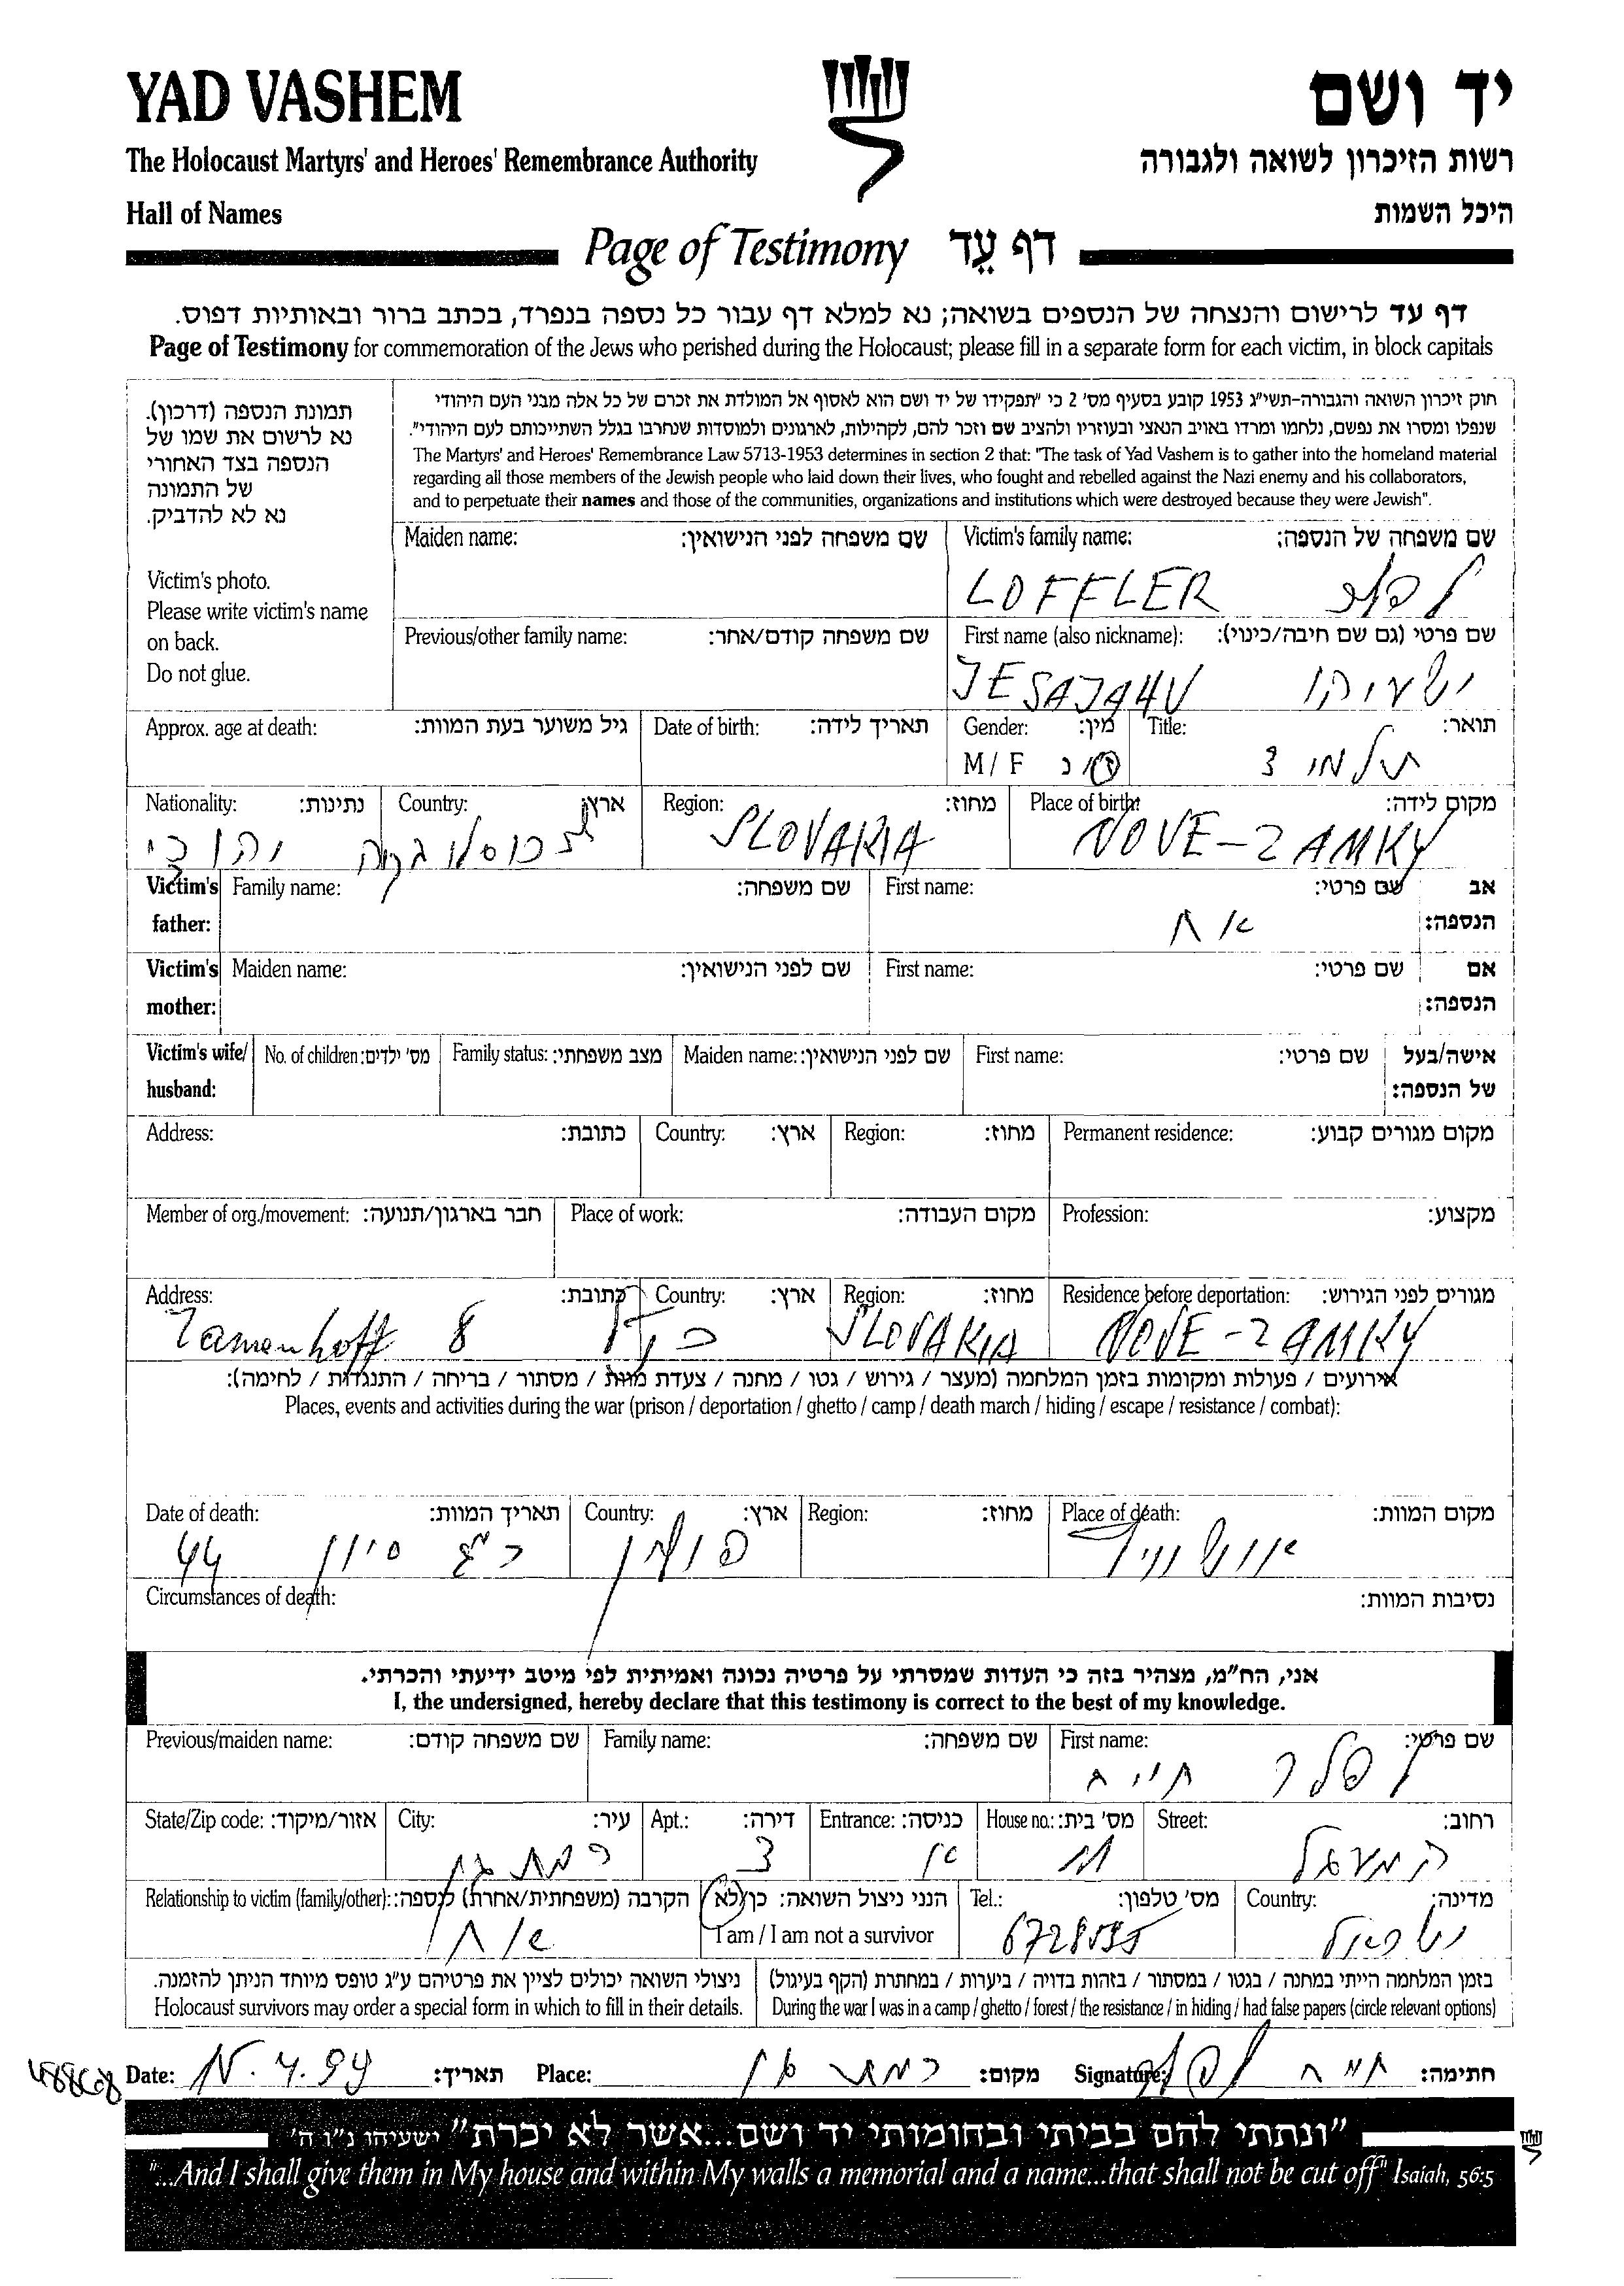 YAD VASHEM
יד ושם
The Holocaust Martyrs' and Heroes' Remembrance Authority
רשות הזיכרון לשואה ולגבורה
Hall of Names
היכל השמות
Page of Testimony דף עֵד
דף עד לרישום והנצחה של הנספים בשואה; נא למלא דף עבור כל נספה בנפרד, בכתב ברור ובאותיות דפוס.
Page of Testimony for commemoration of the Jews who perished during the Holocaust; please fill in a separate form for each victim, in block capitals
תמונת הנספה (דרכון).
נא לרשום את שמו של
הנספה בצד האחורי
של התמונה
נא לא להדביק.
Victim's photo.
Please write victim's name
on back.
Do not glue.
חוק זיכרון השואה והגבורה-תשי"ג 1953 קובע בסעיף מס' 2 כי "תפקידו של יד ושם הוא לאסוף אל המולדת את זכרם של כל אלה מבני העם היהודי
שנפלו ומסרו את נפשם, נלחמו ומרדו באויב הנאצי ובעוזריו ולהציב שם וזכר להם, לקהילות, לארגונים ולמוסדות שנחרבו בגלל השתייכותם לעם היהודי".
The Martyrs' and Heroes' Remembrance Law 5713-1953 determines in section 2 that: "The task of Yad Vashem is to gather into the homeland material
regarding all those members of the Jewish people who laid down their lives, who fought and rebelled against the Nazi enemy and his collaborators,
and to perpetuate their names and those of the communities, organizations and institutions which were destroyed because they were Jewish".
Maiden name: שם משפחה לפני הנישואין: Victim's family name: שם משפחה של הנספה:
LOFFLER לפלר
Previous/other family name: שם משפחה קודם/אחר: First name (also nickname): שם פרטי (גם שם חיבה/כינוי):
JESAJAHU ישעיהו
Approx. age at death: גיל משוער בעת המוות: Date of birth: תאריך לידה: Gender: מין: Title: תואר:
M / F ז/נ תלמיד
Nationality: נתינות: Country: ארץ: Region: מחוז: Place of birth: מקום לידה:
יהודי צכוסלובקיה SLOVAKIA NOVE-ZAMKY
Victim's father: Family name: שם משפחה: First name: שם פרטי: אב הנספה:
אח
Victim's mother: Maiden name: שם לפני הנישואין: First name: שם פרטי: אם הנספה:
Victim's wife/ husband: No. of children: מס' ילדים: Family status: מצב משפחתי: Maiden name: שם לפני הנישואין: First name: שם פרטי: אישה/בעל של הנספה:
Address: כתובת: Country: ארץ: Region: מחוז: Permanent residence: מקום מגורים קבוע:
Member of org./movement: חבר בארגון/תנועה: Place of work: מקום העבודה: Profession: מקצוע:
Address: כתובת: Country: ארץ: Region: מחוז: Residence before deportation: מגורים לפני הגירוש:
Zamenhoff 8 SLOVAKIA NOVE-ZAMKY
אירועים / פעולות ומקומות בזמן המלחמה (מעצר / גירוש / גטו / מחנה / צעדת מוות / מסתור / בריחה / התנגדות / לחימה):
Places, events and activities during the war (prison / deportation / ghetto / camp / death march / hiding / escape / resistance / combat):
Date of death: תאריך המוות: Country: ארץ: Region: מחוז: Place of death: מקום המוות:
כ"ג סיון 44 פולין אושוויץ
Circumstances of death: נסיבות המוות:
אני, הח"מ, מצהיר בזה כי העדות שמסרתי על פרטיה נכונה ואמיתית לפי מיטב ידיעתי והכרתי.
I, the undersigned, hereby declare that this testimony is correct to the best of my knowledge.
Previous/maiden name: שם משפחה קודם: Family name: שם משפחה: First name: שם פרטי:
לפלר חיים
State/Zip code: אזור/מיקוד: City: עיר: Apt.: דירה: Entrance: כניסה: House no.: מס' בית: Street: רחוב:
רמת גן 3 א 11 המעגל
Relationship to victim (family/other): הקרבה (משפחתית/אחרת) לנספה: הנני ניצול השואה: כן/לא Tel.: מס' טלפון: Country: מדינה:
אח I am / I am not a survivor ישראל
בזמן המלחמה הייתי במחנה / בגטו / במסתור / בזהות בדויה / ביערות / במחתרת (הקף בעיגול)
ניצולי השואה יכולים לציין את פרטיהם ע"ג טופס מיוחד הניתן להזמנה.
Holocaust survivors may order a special form in which to fill in their details. During the war I was in a camp / ghetto / forest / the resistance / in hiding / had false papers (circle relevant options)
Date: תאריך: Place: רמת גן מקום: Signature: חיים לפלר חתימה:
"ונתתי להם בביתי ובחומותי יד ושם...אשר לא יכרת" ישעיהו נ"ו ה'
"...And I shall give them in My house and within My walls a memorial and a name...that shall not be cut off" Isaiah, 56:5